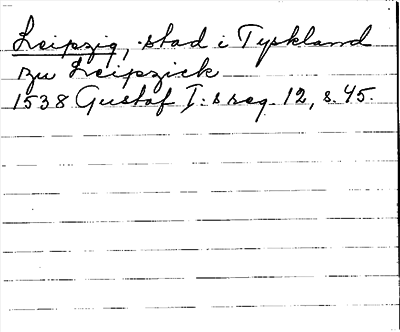 Leipzig, stad i Tyskland
zu Leipzick
1538 Gustaf I:s reg. 12, s. 45.